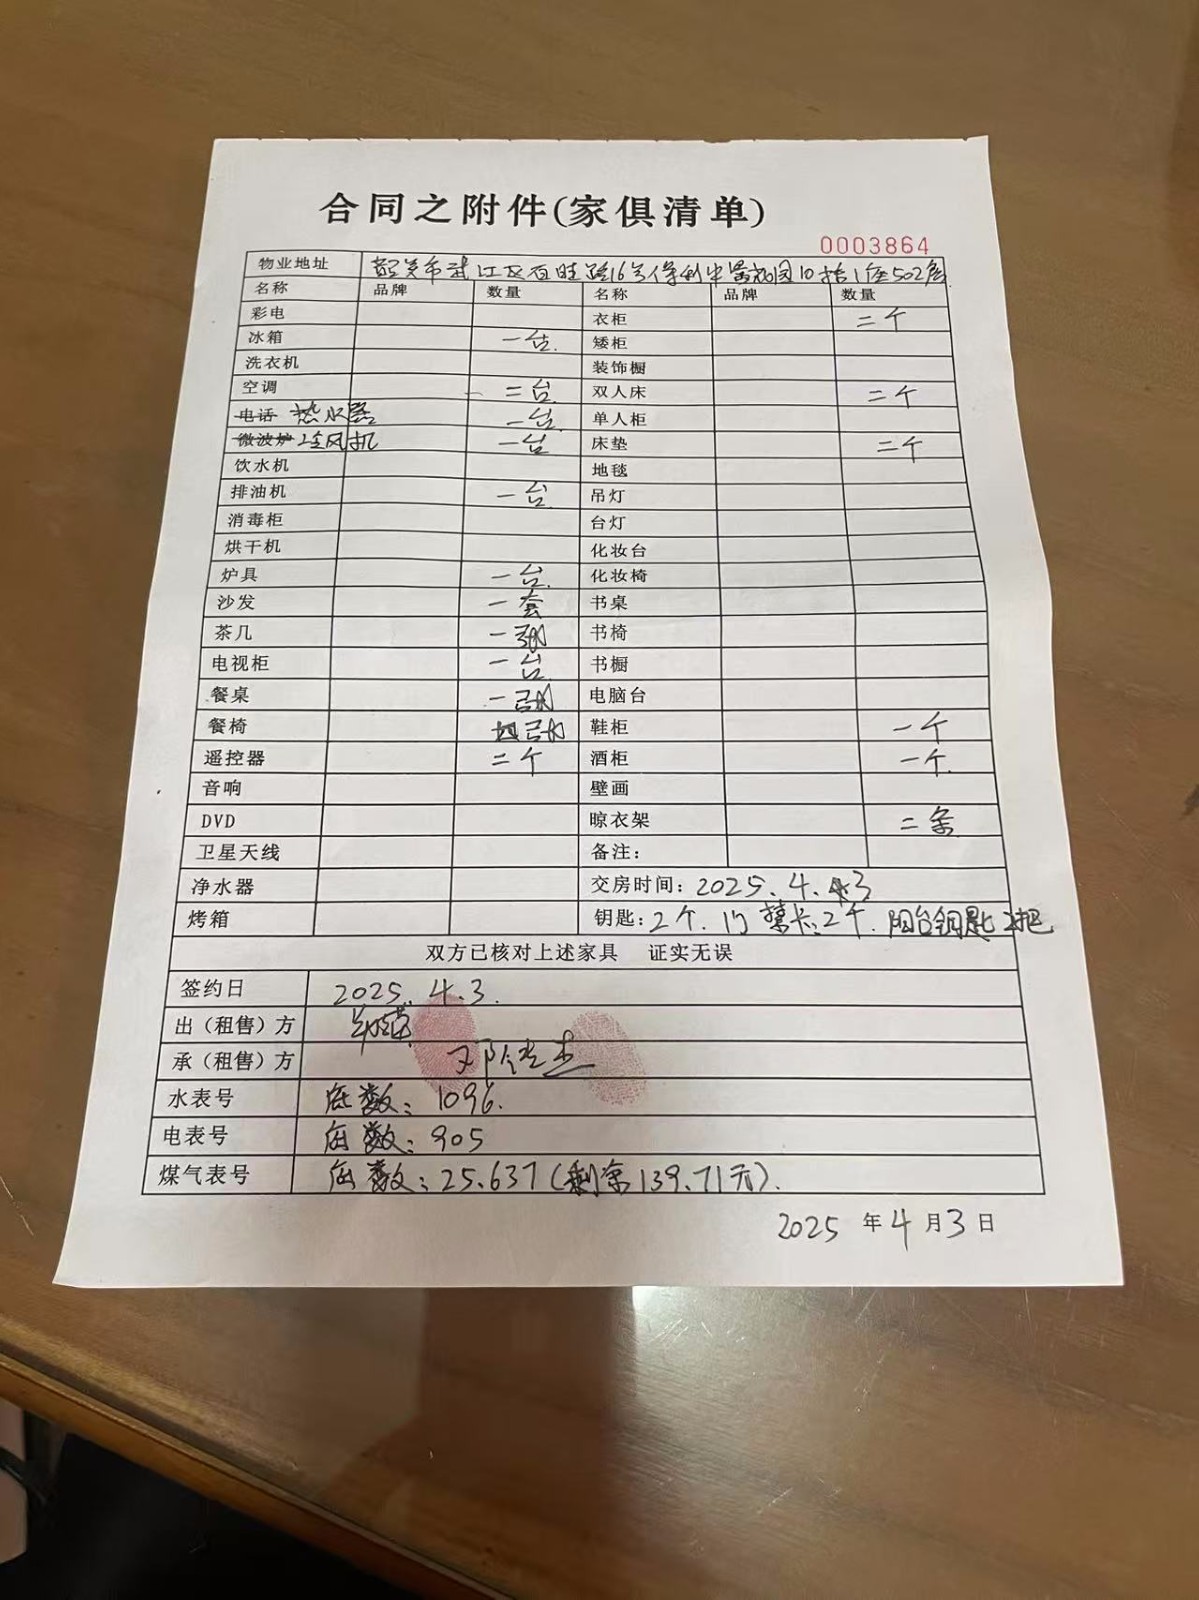 合同之附件(家俱清单)
0003864
物业地址 韶关市武江区百旺路16号保利中景花园10栋1座502房
名称 品牌 数量 名称 品牌 数量
彩电 衣柜 二个
冰箱 一台 矮柜
洗衣机 装饰橱
空调 二台 双人床 二个
电话 热水器 一台 单人柜
微波炉 冷风机 一台 床垫 二个
饮水机 地毯
排油机 一台 吊灯
消毒柜 台灯
烘干机 化妆台
炉具 一台 化妆椅
沙发 一套 书桌
茶几 一张 书椅
电视柜 一台 书橱
餐桌 一张 电脑台
餐椅 四张 鞋柜 一个
遥控器 二个 酒柜 一个
音响 壁画
DVD 晾衣架 二条
卫星天线 备注:
净水器 交房时间: 2025.4.3
烤箱 钥匙: 2个. 门禁卡: 2个. 阳台钥匙2把
双方已核对上述家具 证实无误
签约日 2025.4.3.
出(租售)方
承(租售)方
水表号 底数: 1096.
电表号 底数: 905
煤气表号 底数: 25.637 (剩余139.71元).
2025 年 4 月 3 日